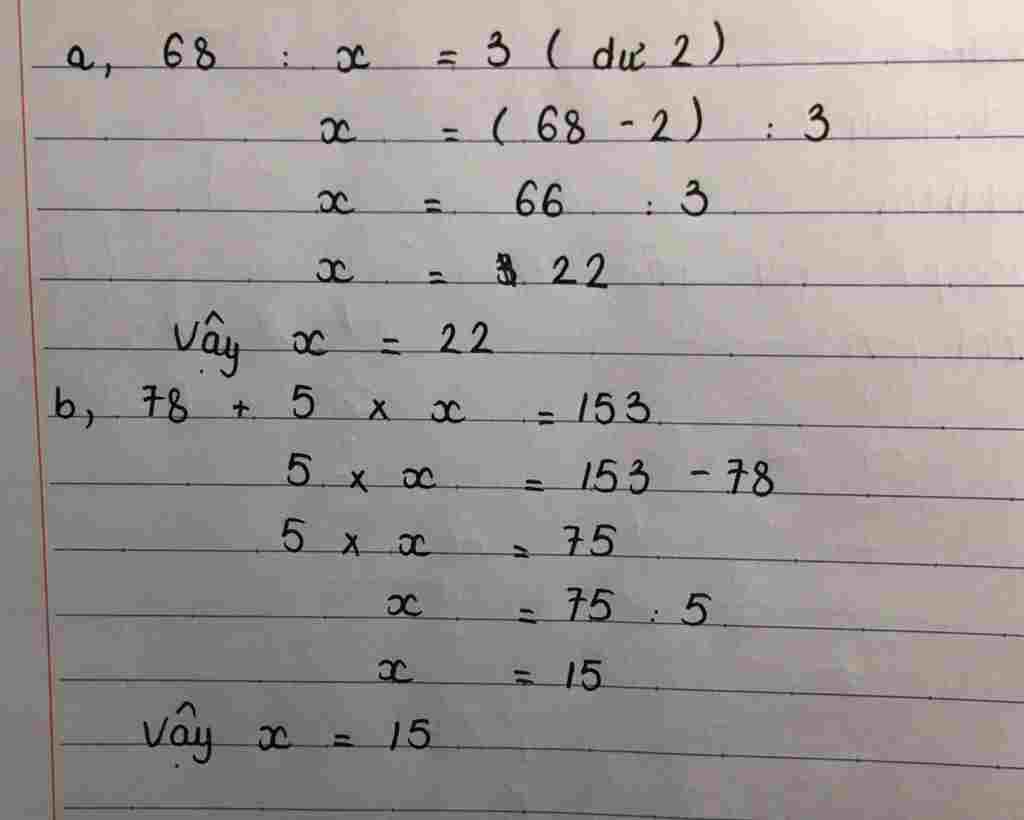 a, 68 : x = 3 ( dư 2 )
x = ( 68 - 2 ) : 3
x = 66 : 3
x = 22
Vậy x = 22
b, 78 + 5 x x = 153
5 x x = 153 - 78
5 x x = 75
x = 75 : 5
x = 15
Vậy x = 15